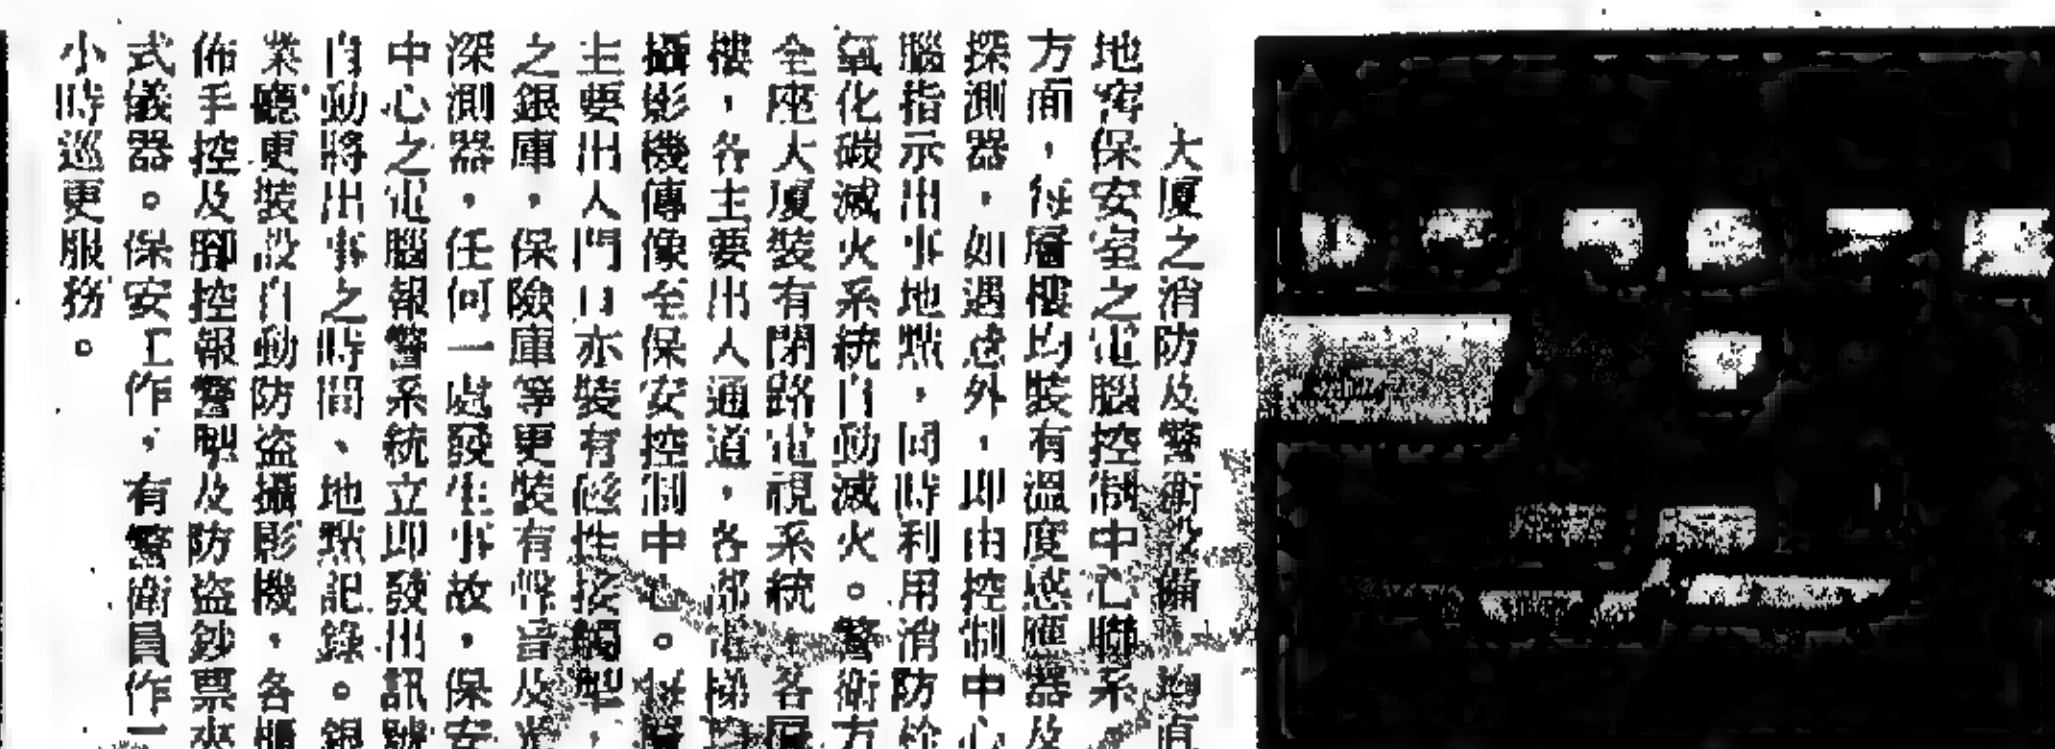 大廈之消防及警衛設備，均直
地窖保安室之電腦控制中心聯系
方面，每層樓均裝有溫度感應器及
探測器，如遇意外，即由控制中心
腦指示出事地點，同時利用消防栓
氧化碳滅火系統自動滅火。警衛方
全座大廈裝有閉路電視系統，各層
樓，各主要出入通道，各部電梯均
攝影機傳像至保安控制中心。
主要出入門口亦裝有磁性接觸掣，
之銀庫，保險庫等更裝有聲音及
深測器，任何一處發生事故，保安
中心之電腦報警系統立即發出訊號
自動將出事之時間、地點記錄。銀
業廳更裝設自動防盜攝影機，各櫃
佈手控及腳控報警掣及防盜鈔票夾
式儀器。保安工作，有警衛員作一
小時巡更服務。